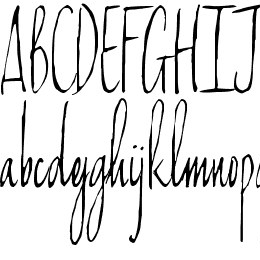 ABCDEFGHIJ
abcdyghijklmnop